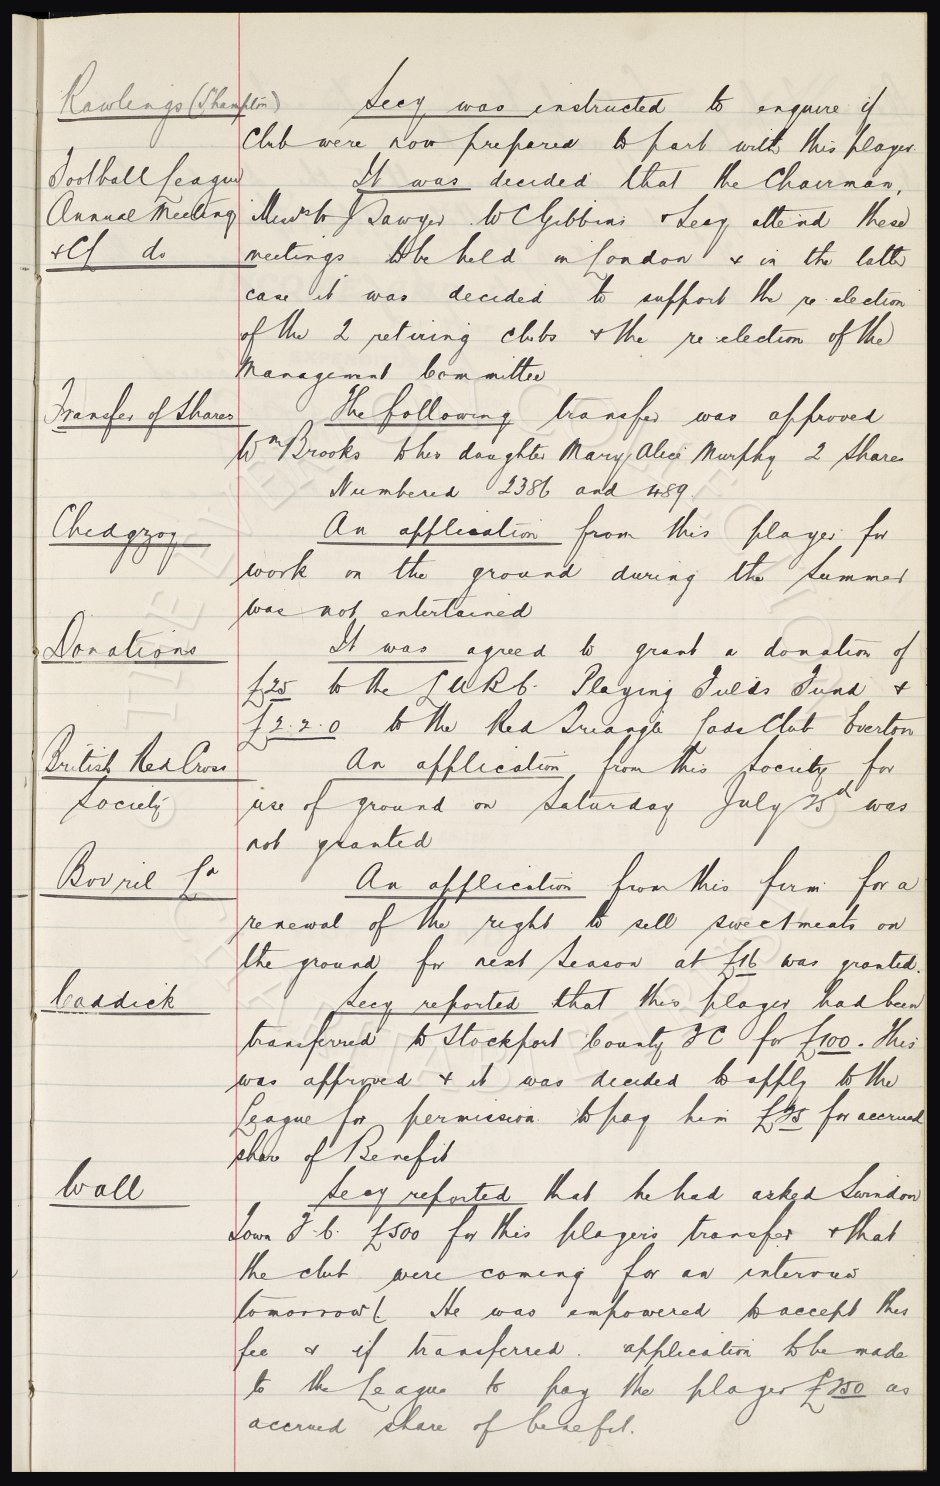 Rawlings (Shampton) Secy was instructed to enquire if
Club were now prepared to part with this player.
Football League It was decided that the Chairman,
Annual Meeting Messrs Sawyer W C Gibbins & Secy attend these
& CL do meetings to be held in London & in the latter
case it was decided to support the re election
of the 2 retiring clubs & the re election of the
Management Committee
Transfer of Shares The following transfer was approved
Wm Brooks to his daughter Mary Alice Murphy 2 Shares
Numbered 2386 and 489.
Chedgzoy An application from this player for
work on the ground during the Summer
was not entertained
Donations It was agreed to grant a donation of
£25 to the Playing Fields Fund &
£2.2.0 to the Red Triangle Lads Club Everton
British Red Cross An application from this Society for
Society use of ground on Saturday July 25th was
not granted
Bovril Ld An application from this firm for a
renewal of the right to sell sweetmeats on
the ground for next Season at £16 was granted.
Caddick Secy reported that this player had been
transferred to Stockport County FC for £100. This
was approved & it was decided to apply to the
League for permission to pay him for accrued
share of Benefit
Wall Secy reported that he had asked Swindon
Town F.C. £500 for this players transfer & that
the club were coming for an interview
tomorrow ( He was empowered to accept this
fee & if transferred. application to be made
to the League to pay the player £250 as
accrued share of benefit.